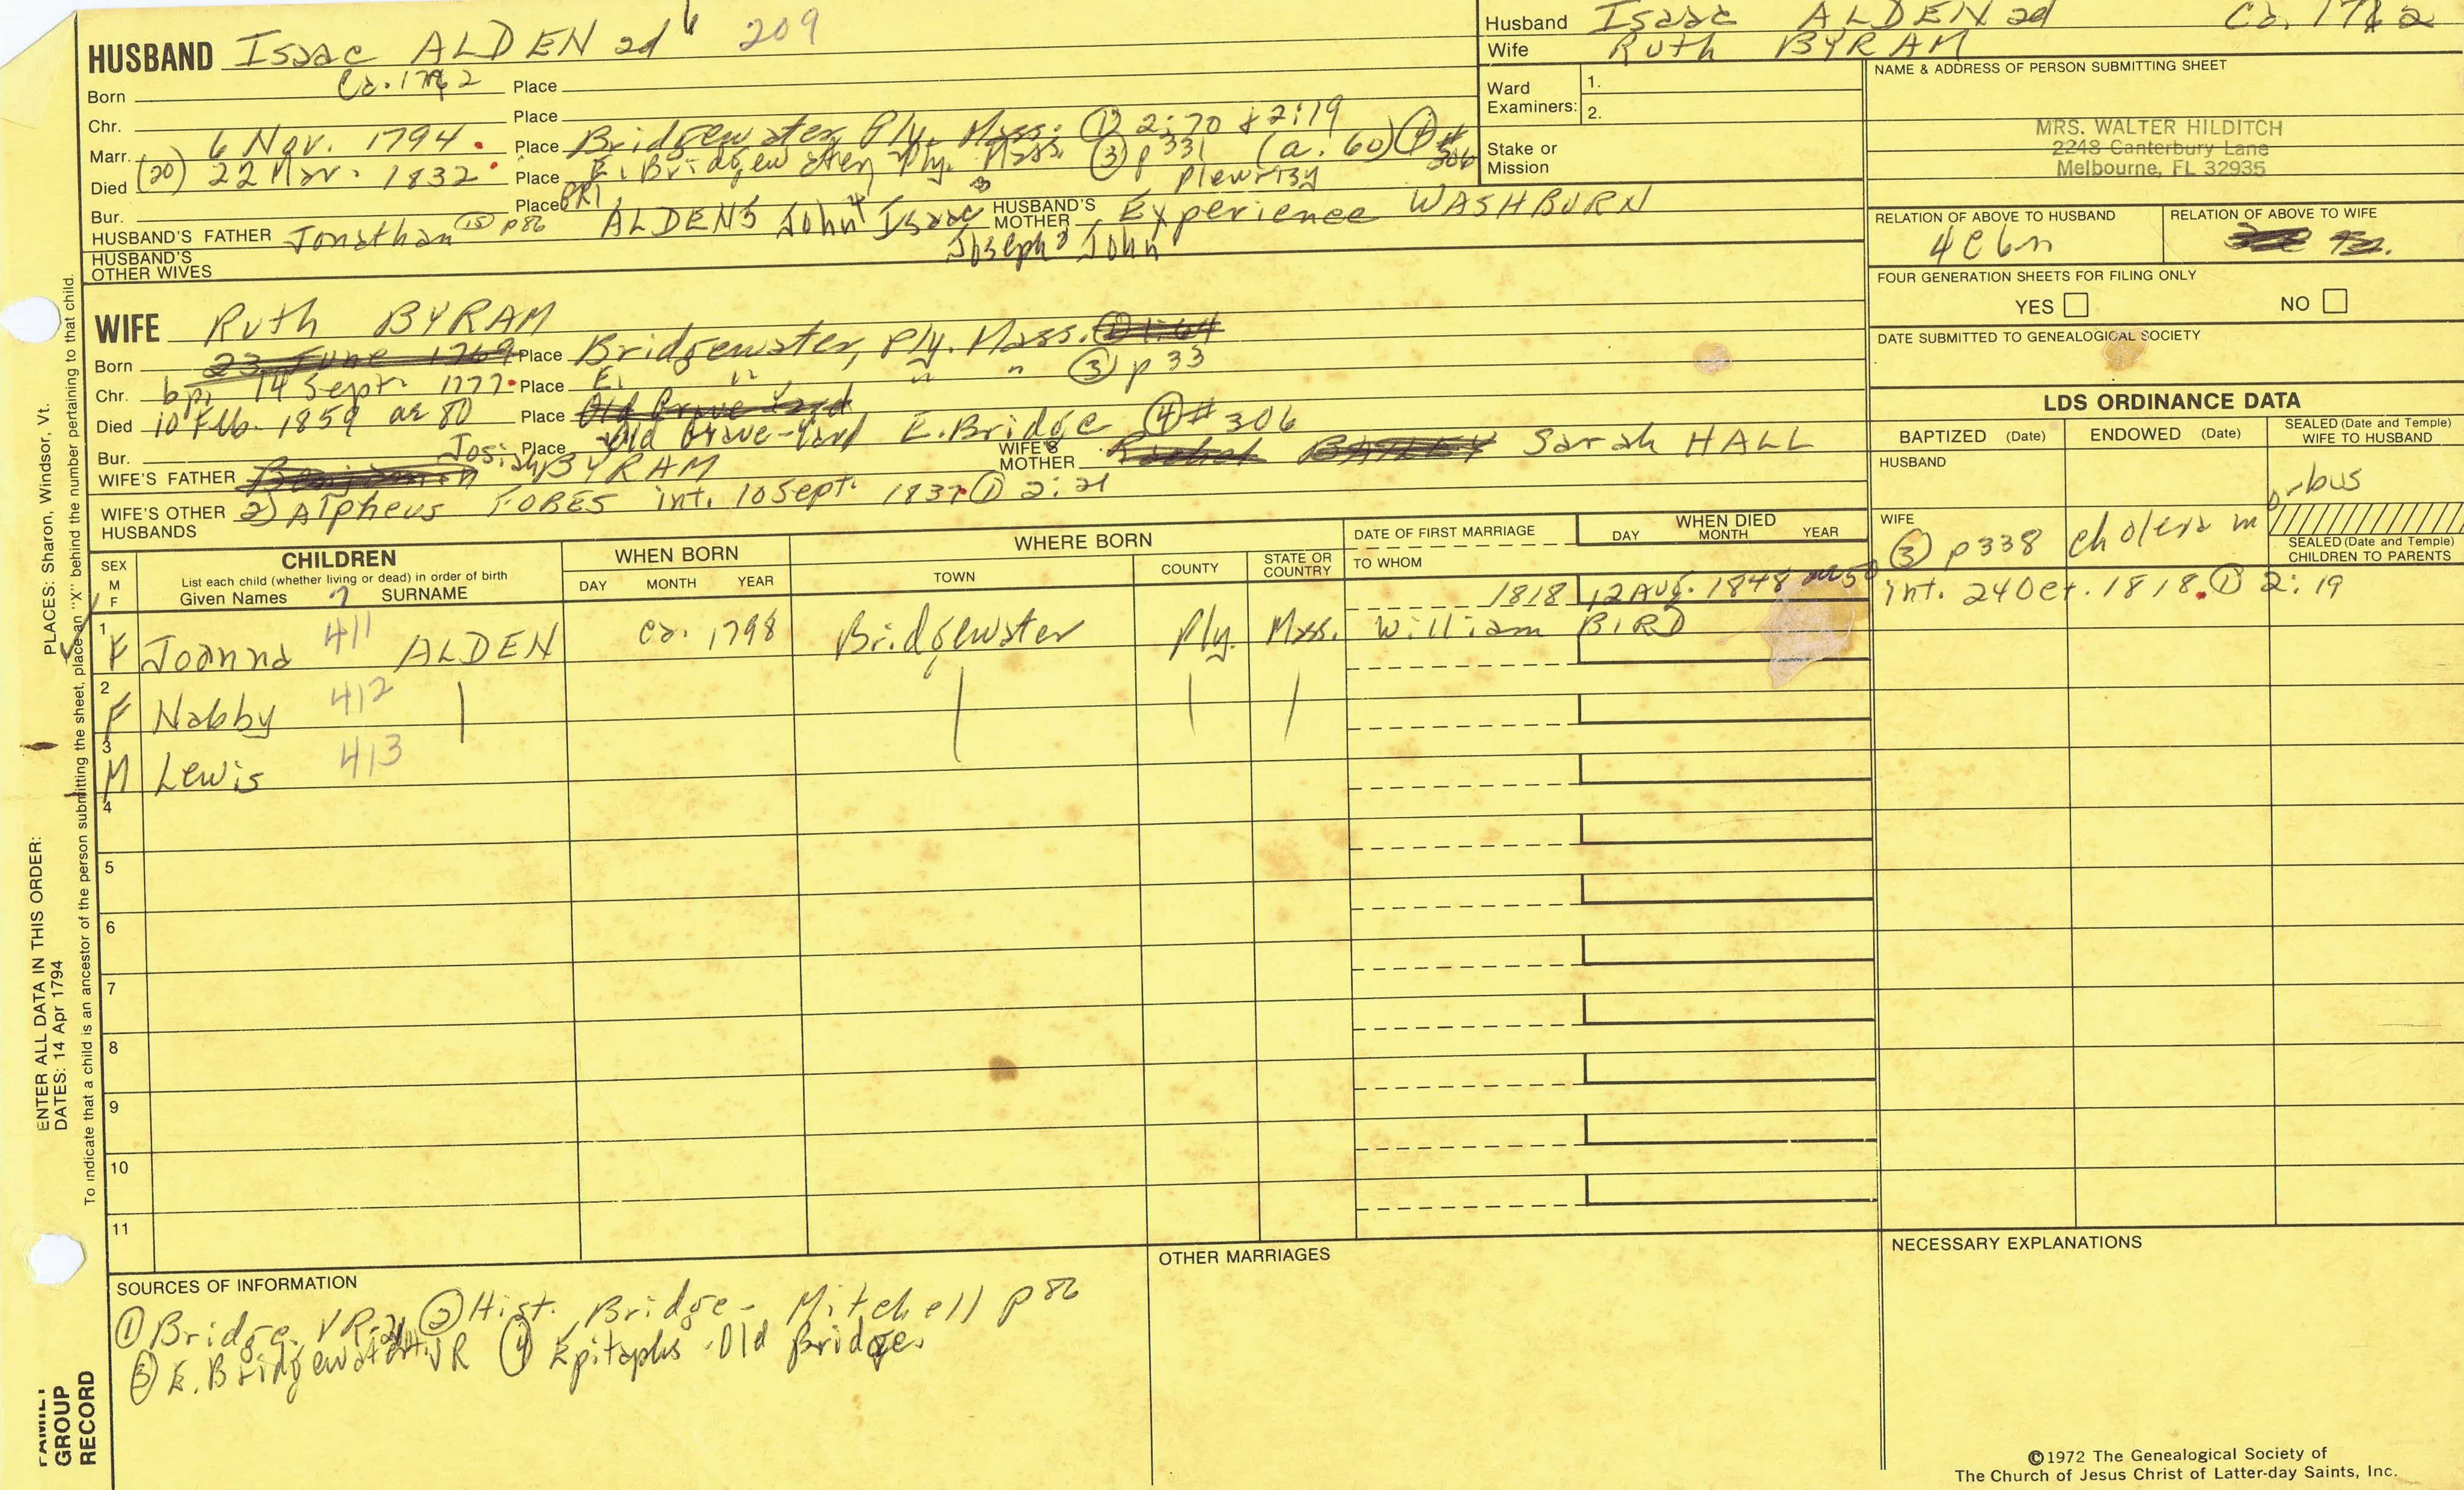 HUSBAND Isaac ALDEN 2d 6 209
Born Ca. 1762 Place
Chr. Place
Marr. 6 Nov. 1794. Place Bridgewater, Ply. Mass. ① 2:70 & 2:19
Died (20) 22 Mar. 1832 Place E. Bridgewater, Ply. Mass. ③ p 331 (a. 60) ④ # 306
Pleurisy
Bur. Place
HUSBAND'S FATHER Jonathan 5 p86 ALDEN5 John4 Isaac3 HUSBAND'S MOTHER Experience WASHBURN
HUSBAND'S OTHER WIVES Joseph2 John
Husband Isaac ALDEN 2d Ca. 1762
Wife Ruth BYRAM
Ward Examiners: 1.
2.
Stake or Mission
NAME & ADDRESS OF PERSON SUBMITTING SHEET
MRS. WALTER HILDITCH
2248 Canterbury Lane
Melbourne, FL 32935
RELATION OF ABOVE TO HUSBAND RELATION OF ABOVE TO WIFE
4C6n
FOUR GENERATION SHEETS FOR FILING ONLY
YES NO
DATE SUBMITTED TO GENEALOGICAL SOCIETY
WIFE Ruth BYRAM
Born 23 June 1769 Place Bridgewater, Ply. Mass. ① 1:64
Chr. bp. 14 Sept. 1777. Place E. " " " ③ p 33
Died 10 Feb. 1859 ae 80 Place Old Grave Yard
Bur. Place Old Grave-Yard E. Bridge ④ # 306
WIFE'S FATHER Benjamin Josiah BYRAM WIFE'S MOTHER Rachel BAILEY Sarah HALL
WIFE'S OTHER HUSBANDS 2) Alpheus FOBES int. 10 Sept. 1837. ① 2:21
LDS ORDINANCE DATA
BAPTIZED (Date) ENDOWED (Date) SEALED (Date and Temple) WIFE TO HUSBAND
HUSBAND
orbus
WIFE
③ p338 cholera m
SEALED (Date and Temple) CHILDREN TO PARENTS
SEX M F
CHILDREN
List each child (whether living or dead) in order of birth
Given Names 7 SURNAME
WHEN BORN
DAY MONTH YEAR
WHERE BORN
TOWN COUNTY STATE OR COUNTRY
DATE OF FIRST MARRIAGE
TO WHOM
WHEN DIED
DAY MONTH YEAR
1818 12 Aug. 1848 ae 50 int. 24 Oct. 1818. ① 2:19
1 F Joanna 411 ALDEN ca. 1798 Bridgewater Ply. Mass. William BIRD
2 F Nabby 412
3 M Lewis 413
4
5
6
7
8
9
10
11
SOURCES OF INFORMATION
① Bridge. VR. ② Hist. Bridge- Mitchell p 86
③ E. Bridgewater VR ④ Epitaphs Old Bridge.
OTHER MARRIAGES
NECESSARY EXPLANATIONS
©1972 The Genealogical Society of
The Church of Jesus Christ of Latter-day Saints, Inc.
ENTER ALL DATA IN THIS ORDER:
DATES: 14 Apr 1794
PLACES: Sharon, Windsor, Vt.
To indicate that a child is an ancestor of the person submitting the sheet, place an "X" behind the number pertaining to that child.
FAMILY
GROUP
RECORD